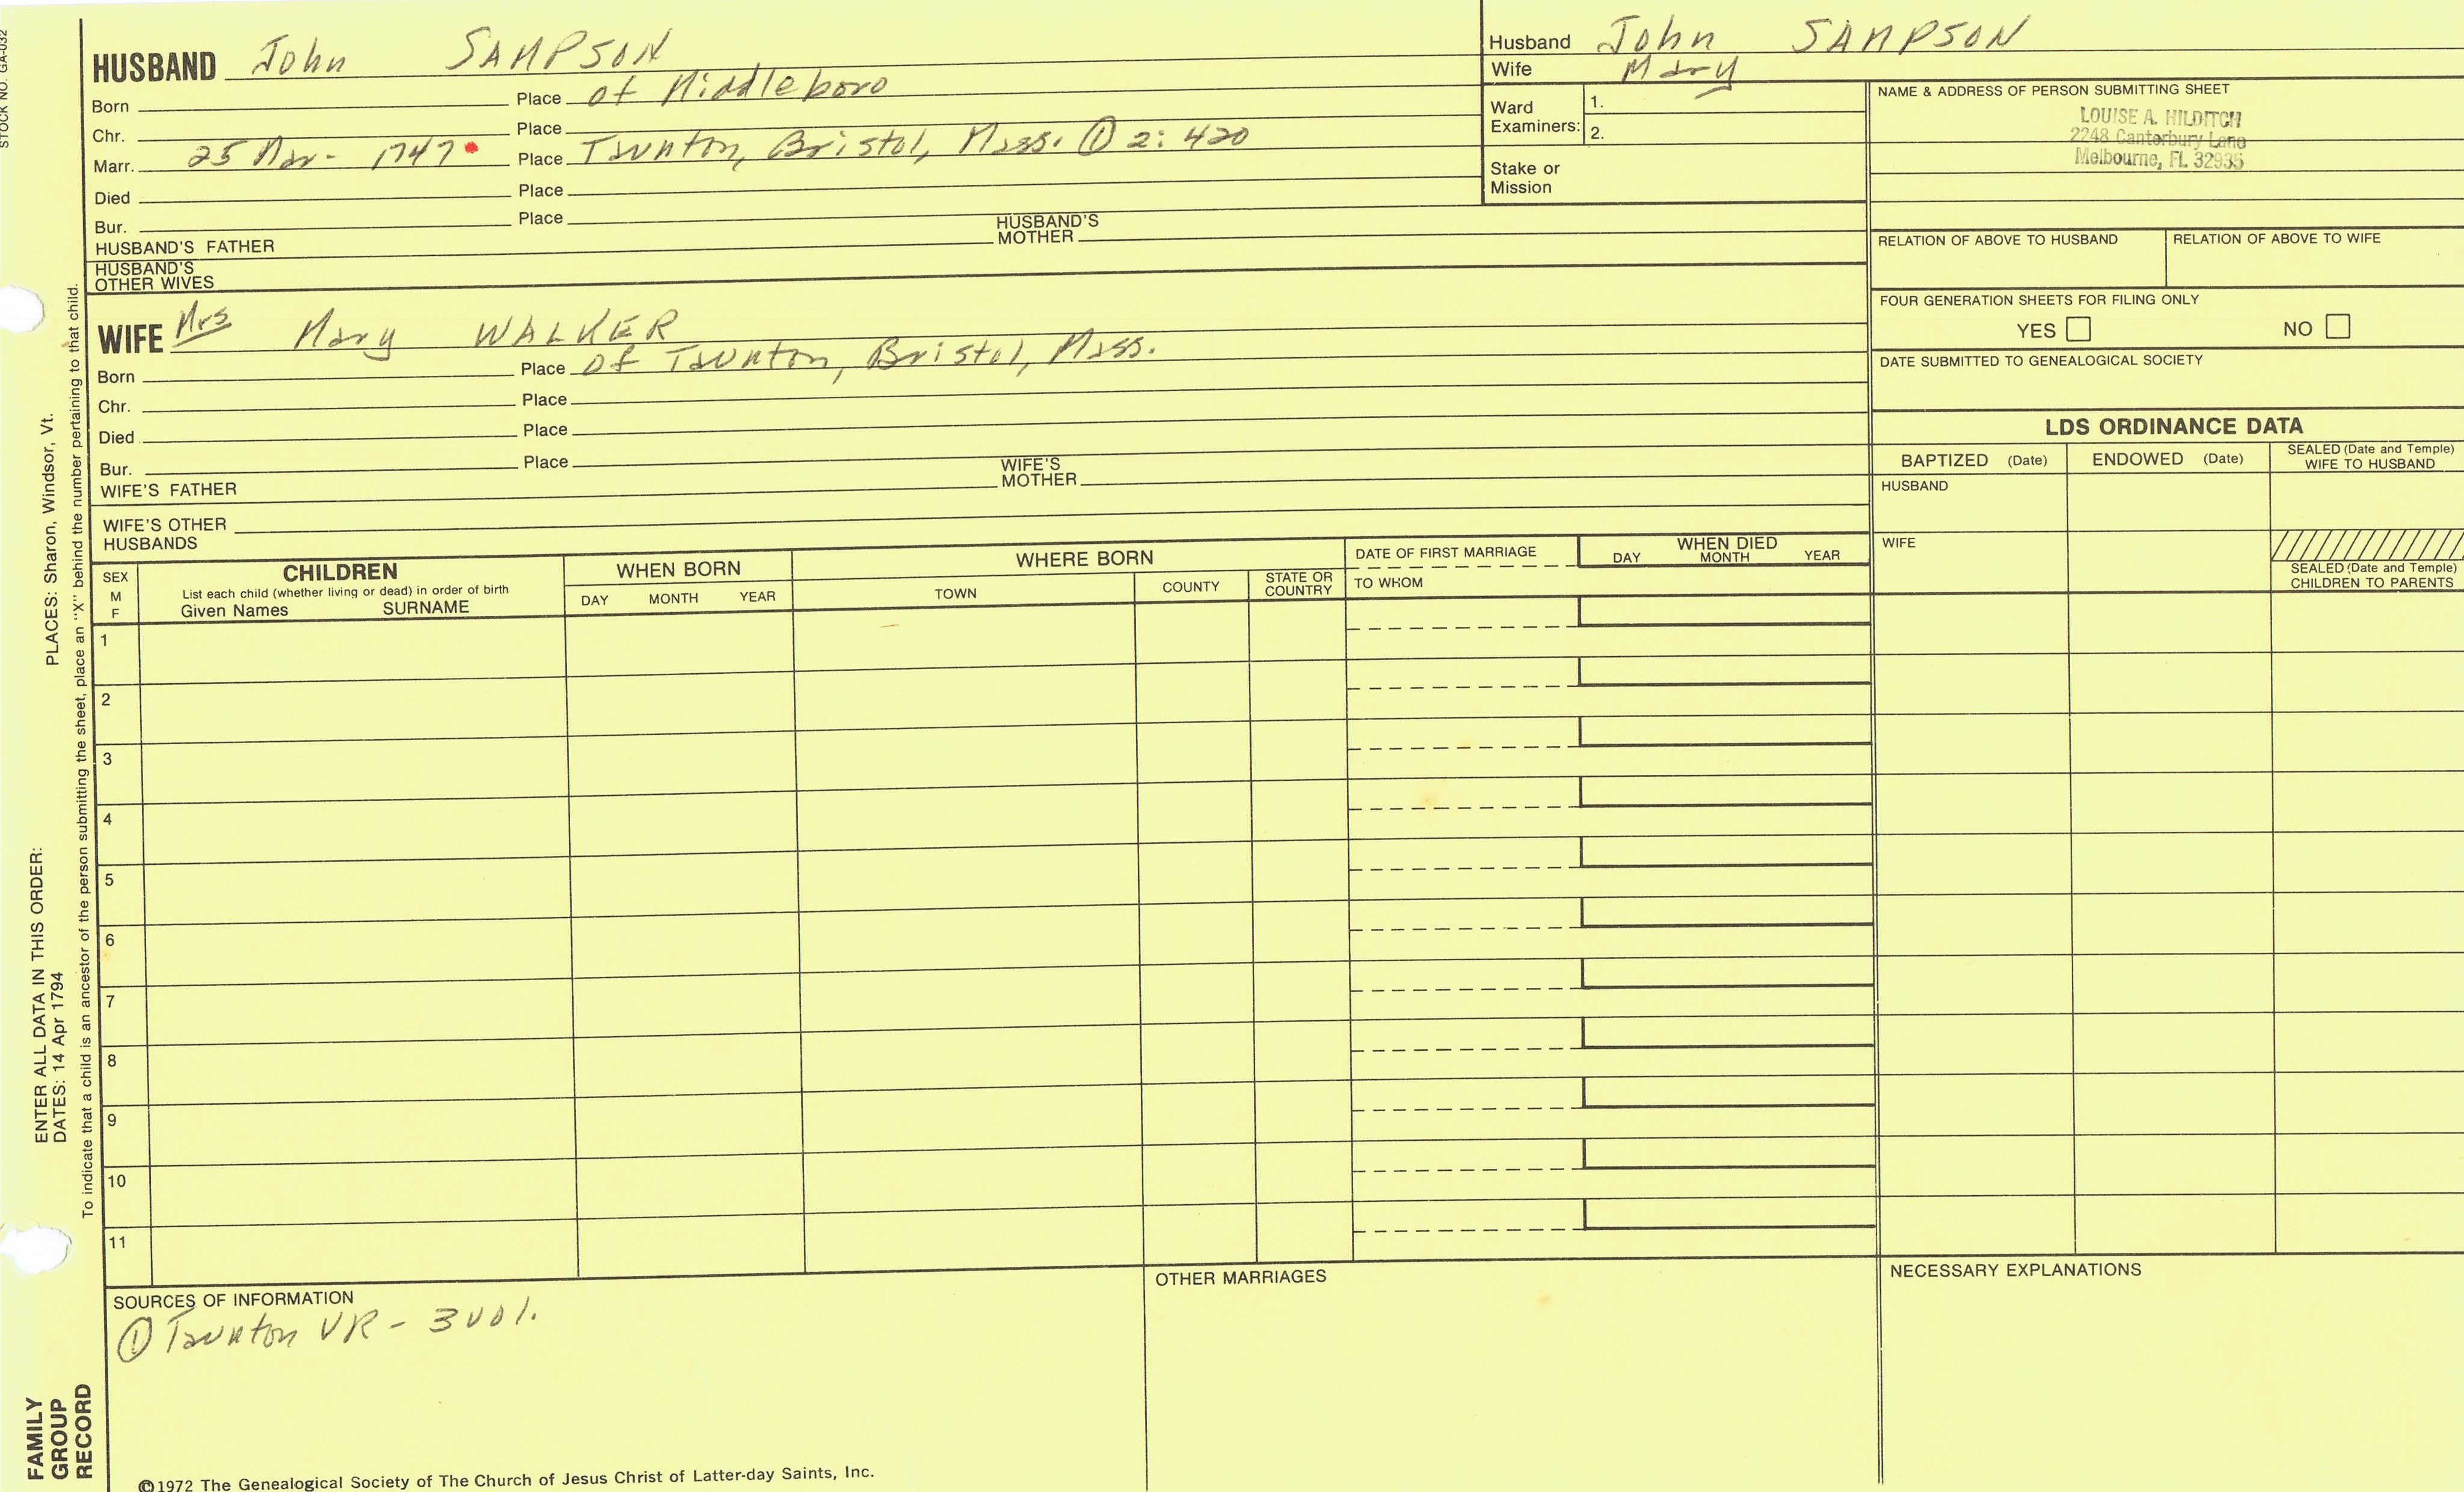 STOCK NO. GA-032
HUSBAND John SAMPSON
Born Place of Middleboro
Chr. Place
Marr. 25 Mar - 1747 Place Taunton, Bristol, Mass. ① 2: 420
Died Place
Bur. Place
HUSBAND'S FATHER HUSBAND'S MOTHER
HUSBAND'S OTHER WIVES
WIFE Mrs Mary WALKER
Born Place Of Taunton, Bristol, Mass.
Chr. Place
Died Place
Bur. Place
WIFE'S FATHER WIFE'S MOTHER
WIFE'S OTHER HUSBANDS
Husband John SAMPSON
Wife Mary
Ward Examiners: 1.
2.
Stake or Mission
NAME & ADDRESS OF PERSON SUBMITTING SHEET
LOUISE A. HILDITCH
2248 Canterbury Lane
Melbourne, FL 32935
RELATION OF ABOVE TO HUSBAND RELATION OF ABOVE TO WIFE
FOUR GENERATION SHEETS FOR FILING ONLY
YES NO
DATE SUBMITTED TO GENEALOGICAL SOCIETY
LDS ORDINANCE DATA
BAPTIZED (Date) ENDOWED (Date) SEALED (Date and Temple) WIFE TO HUSBAND
HUSBAND
WIFE
SEALED (Date and Temple) CHILDREN TO PARENTS
SEX M F
CHILDREN
List each child (whether living or dead) in order of birth
Given Names SURNAME
WHEN BORN
DAY MONTH YEAR
WHERE BORN
TOWN COUNTY STATE OR COUNTRY
DATE OF FIRST MARRIAGE
TO WHOM
WHEN DIED
DAY MONTH YEAR
1
2
3
4
5
6
7
8
9
10
11
SOURCES OF INFORMATION
① Taunton VR - 3 vol.
OTHER MARRIAGES
NECESSARY EXPLANATIONS
©1972 The Genealogical Society of The Church of Jesus Christ of Latter-day Saints, Inc.
FAMILY GROUP RECORD
ENTER ALL DATA IN THIS ORDER:
DATES: 14 Apr 1794 PLACES: Sharon, Windsor, Vt.
To indicate that a child is an ancestor of the person submitting the sheet, place an "X" behind the number pertaining to that child.